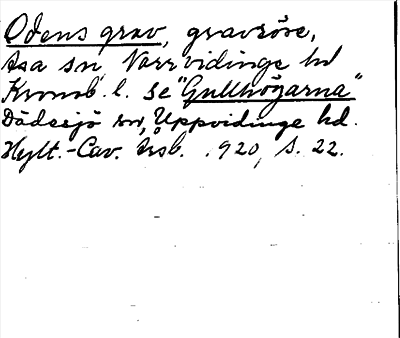 Odens grav, gravröse,
Asa sn, Norrvidinge hd
Kronob. l. se "Gullhögarna"
Dädesjö sn, Uppvidinge hd.
Hylt.-Cav. Årsb. 1920, s. 22.